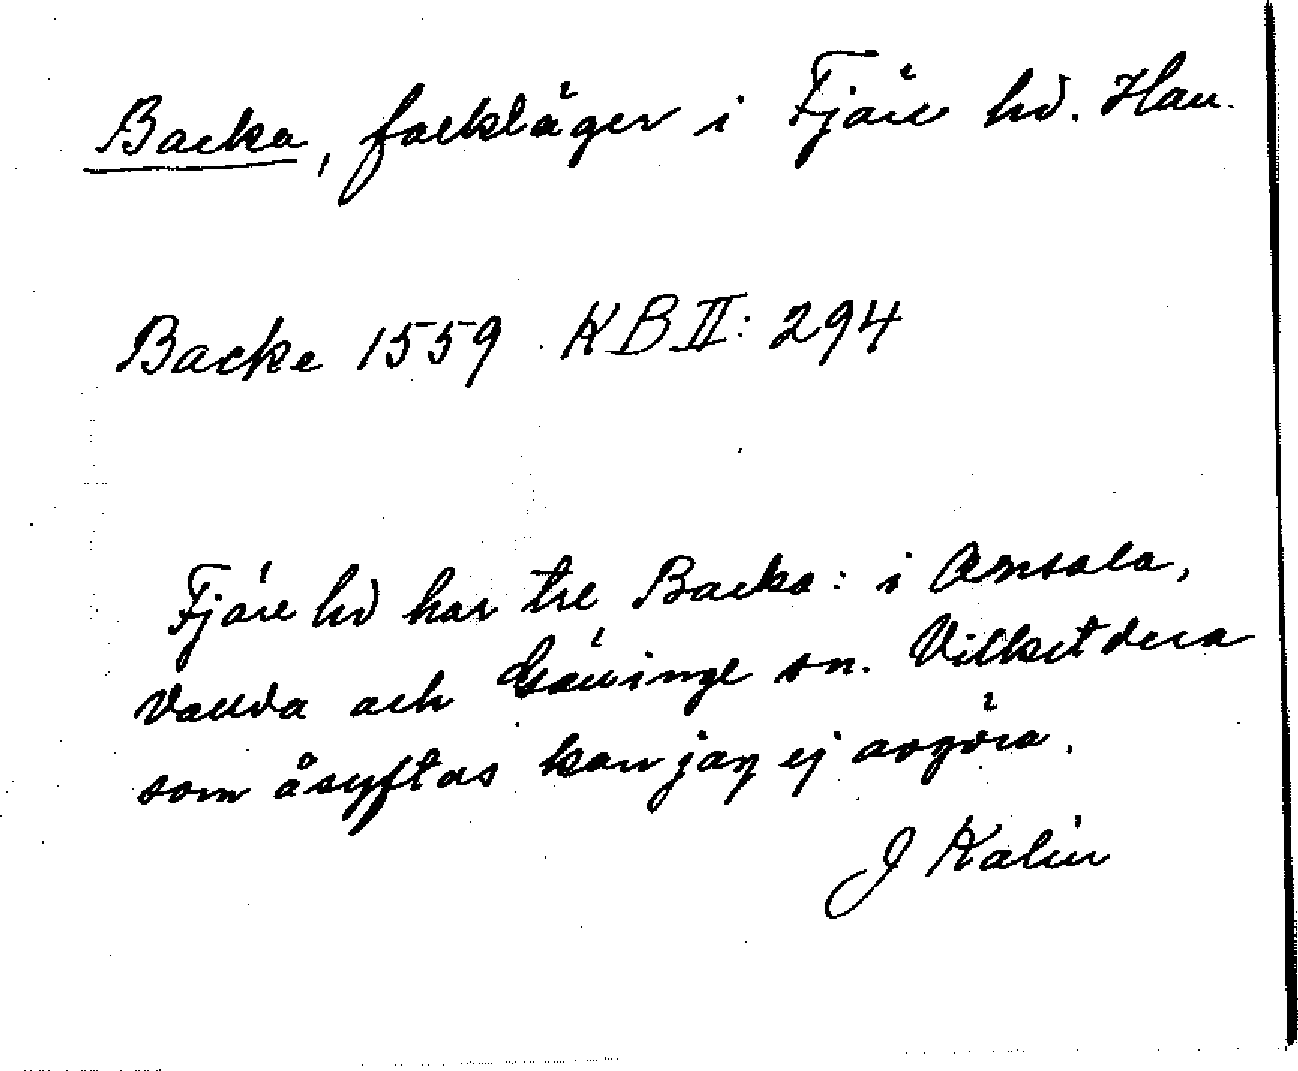 Backa, fackläger i Fjäre hd. Hall.
Backe 1559 KB III: 294
Fjäre hd har tre Backa: i Onsala,
Vallda och Gällinge sn. Vilketdera
som åsyftas kan jag ej avgöra.
J Kalin